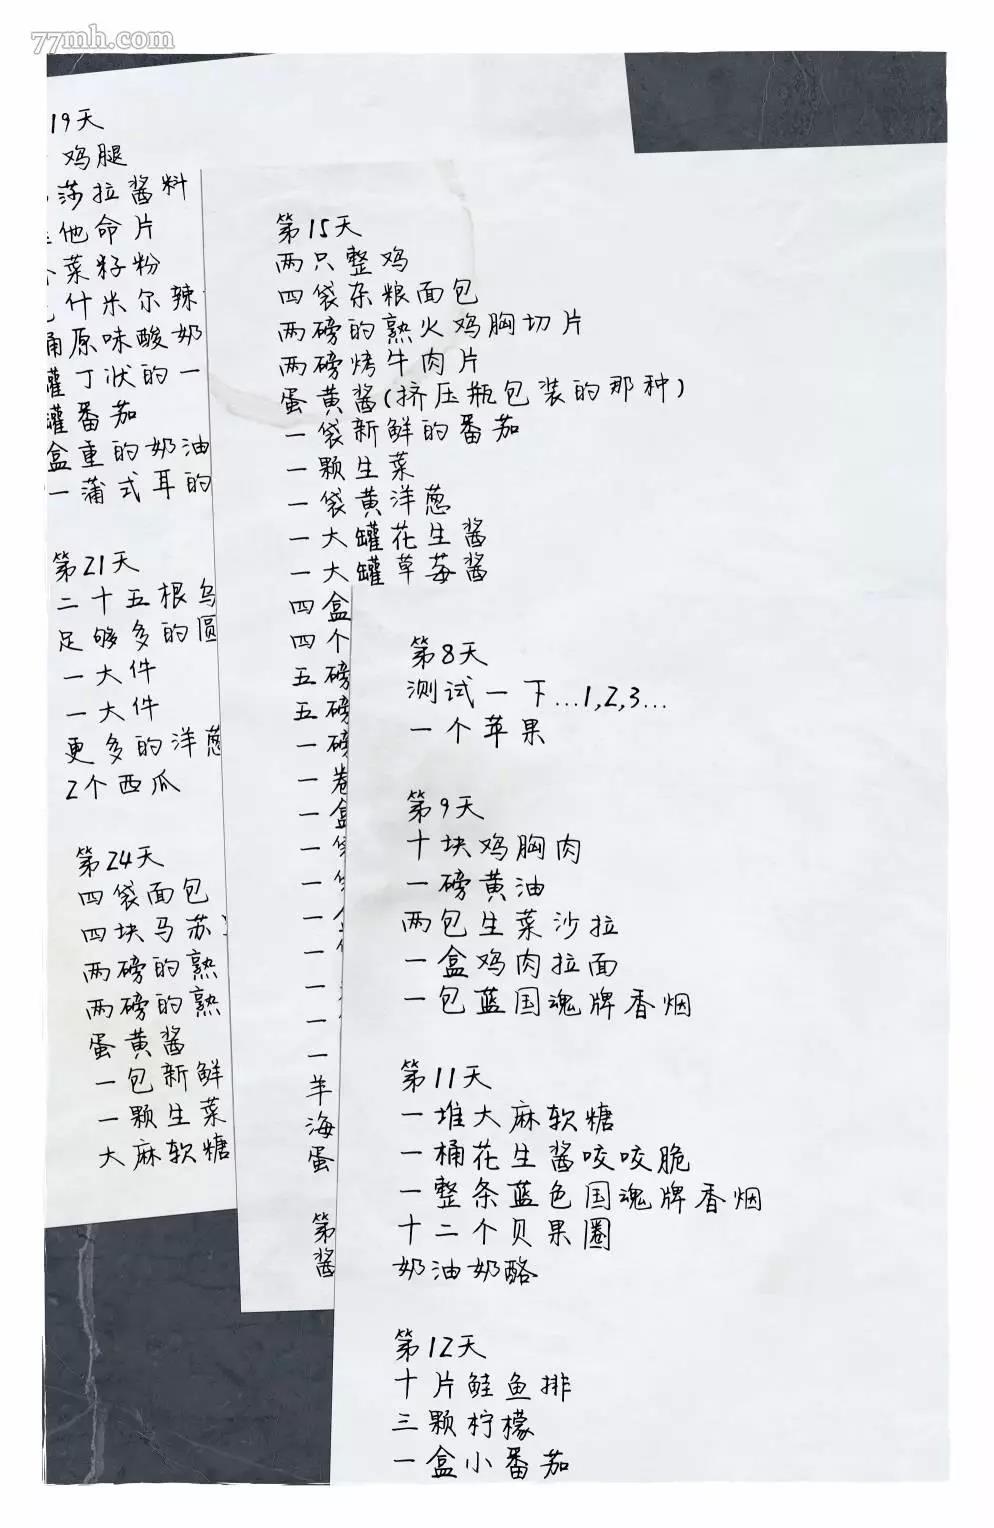 77mh.com
19天
鸡腿
莎拉酱料
他命片
菜籽粉
什米尔辣
桶原味酸奶
罐丁状的一
罐番茄
盒重的奶油
一蒲式耳的
第21天
二十五根乌
足够多的圆
一大件
一大件
更多的洋葱
2个西瓜
第24天
四袋面包
四块马苏
两磅的熟
两磅的熟
蛋黄酱
一包新鲜
一颗生菜
大麻软糖
第15天
两只整鸡
四袋杂粮面包
两磅的熟火鸡胸切片
两磅烤牛肉片
蛋黄酱(挤压瓶包装的那种)
一袋新鲜的番茄
一颗生菜
一袋黄洋葱
一大罐花生酱
一大罐草莓酱
四盒
四个
五磅
五磅
一磅
一卷
一盒
一袋
一袋
一
一
一
一
一
羊
海
蛋
第
酱
第8天
测试一下...1,2,3...
一个苹果
第9天
十块鸡胸肉
一磅黄油
两包生菜沙拉
一盒鸡肉拉面
一包蓝国魂牌香烟
第11天
一堆大麻软糖
一桶花生酱咬咬脆
一整条蓝色国魂牌香烟
十二个贝果圈
奶油奶酪
第12天
十片鲑鱼排
三颗柠檬
一盒小番茄